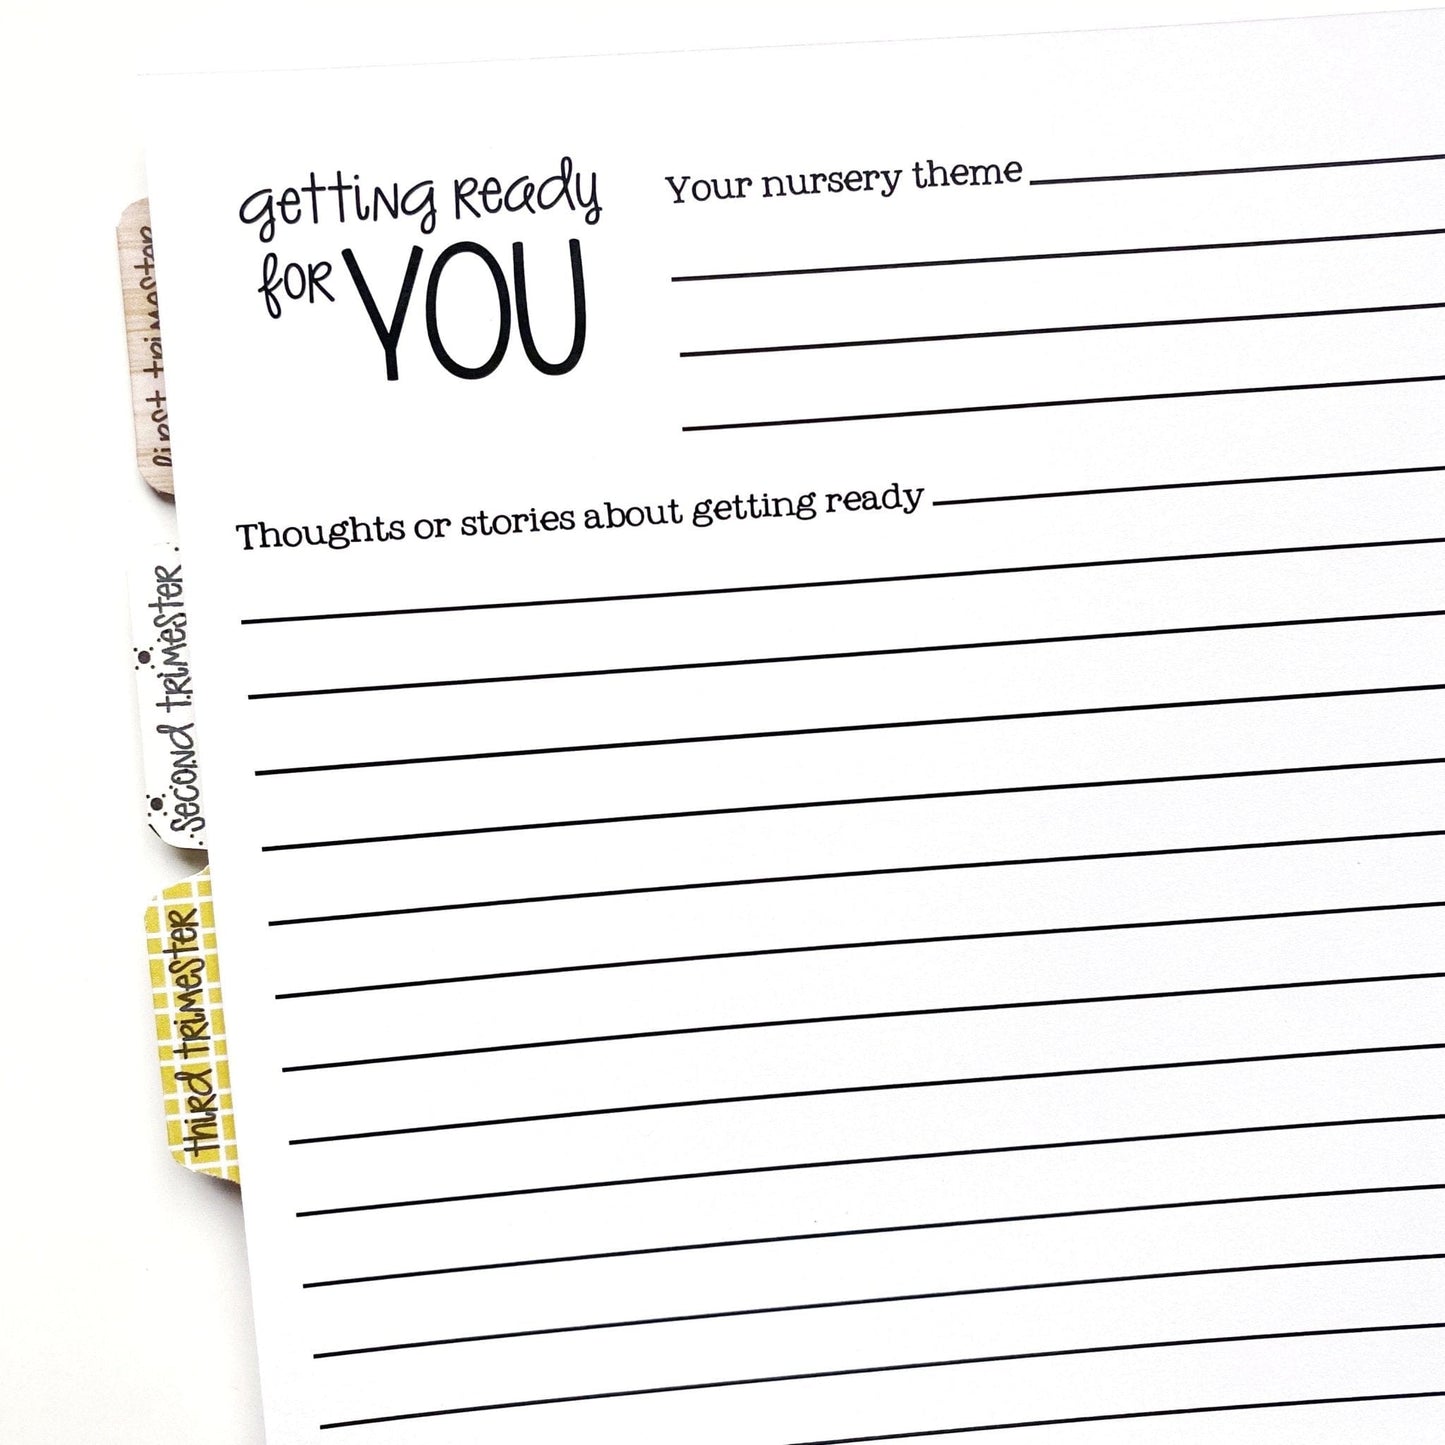 getting ready
for YOU
Your nursery theme
Thoughts or stories about getting ready
first trimester
second trimester
third trimester